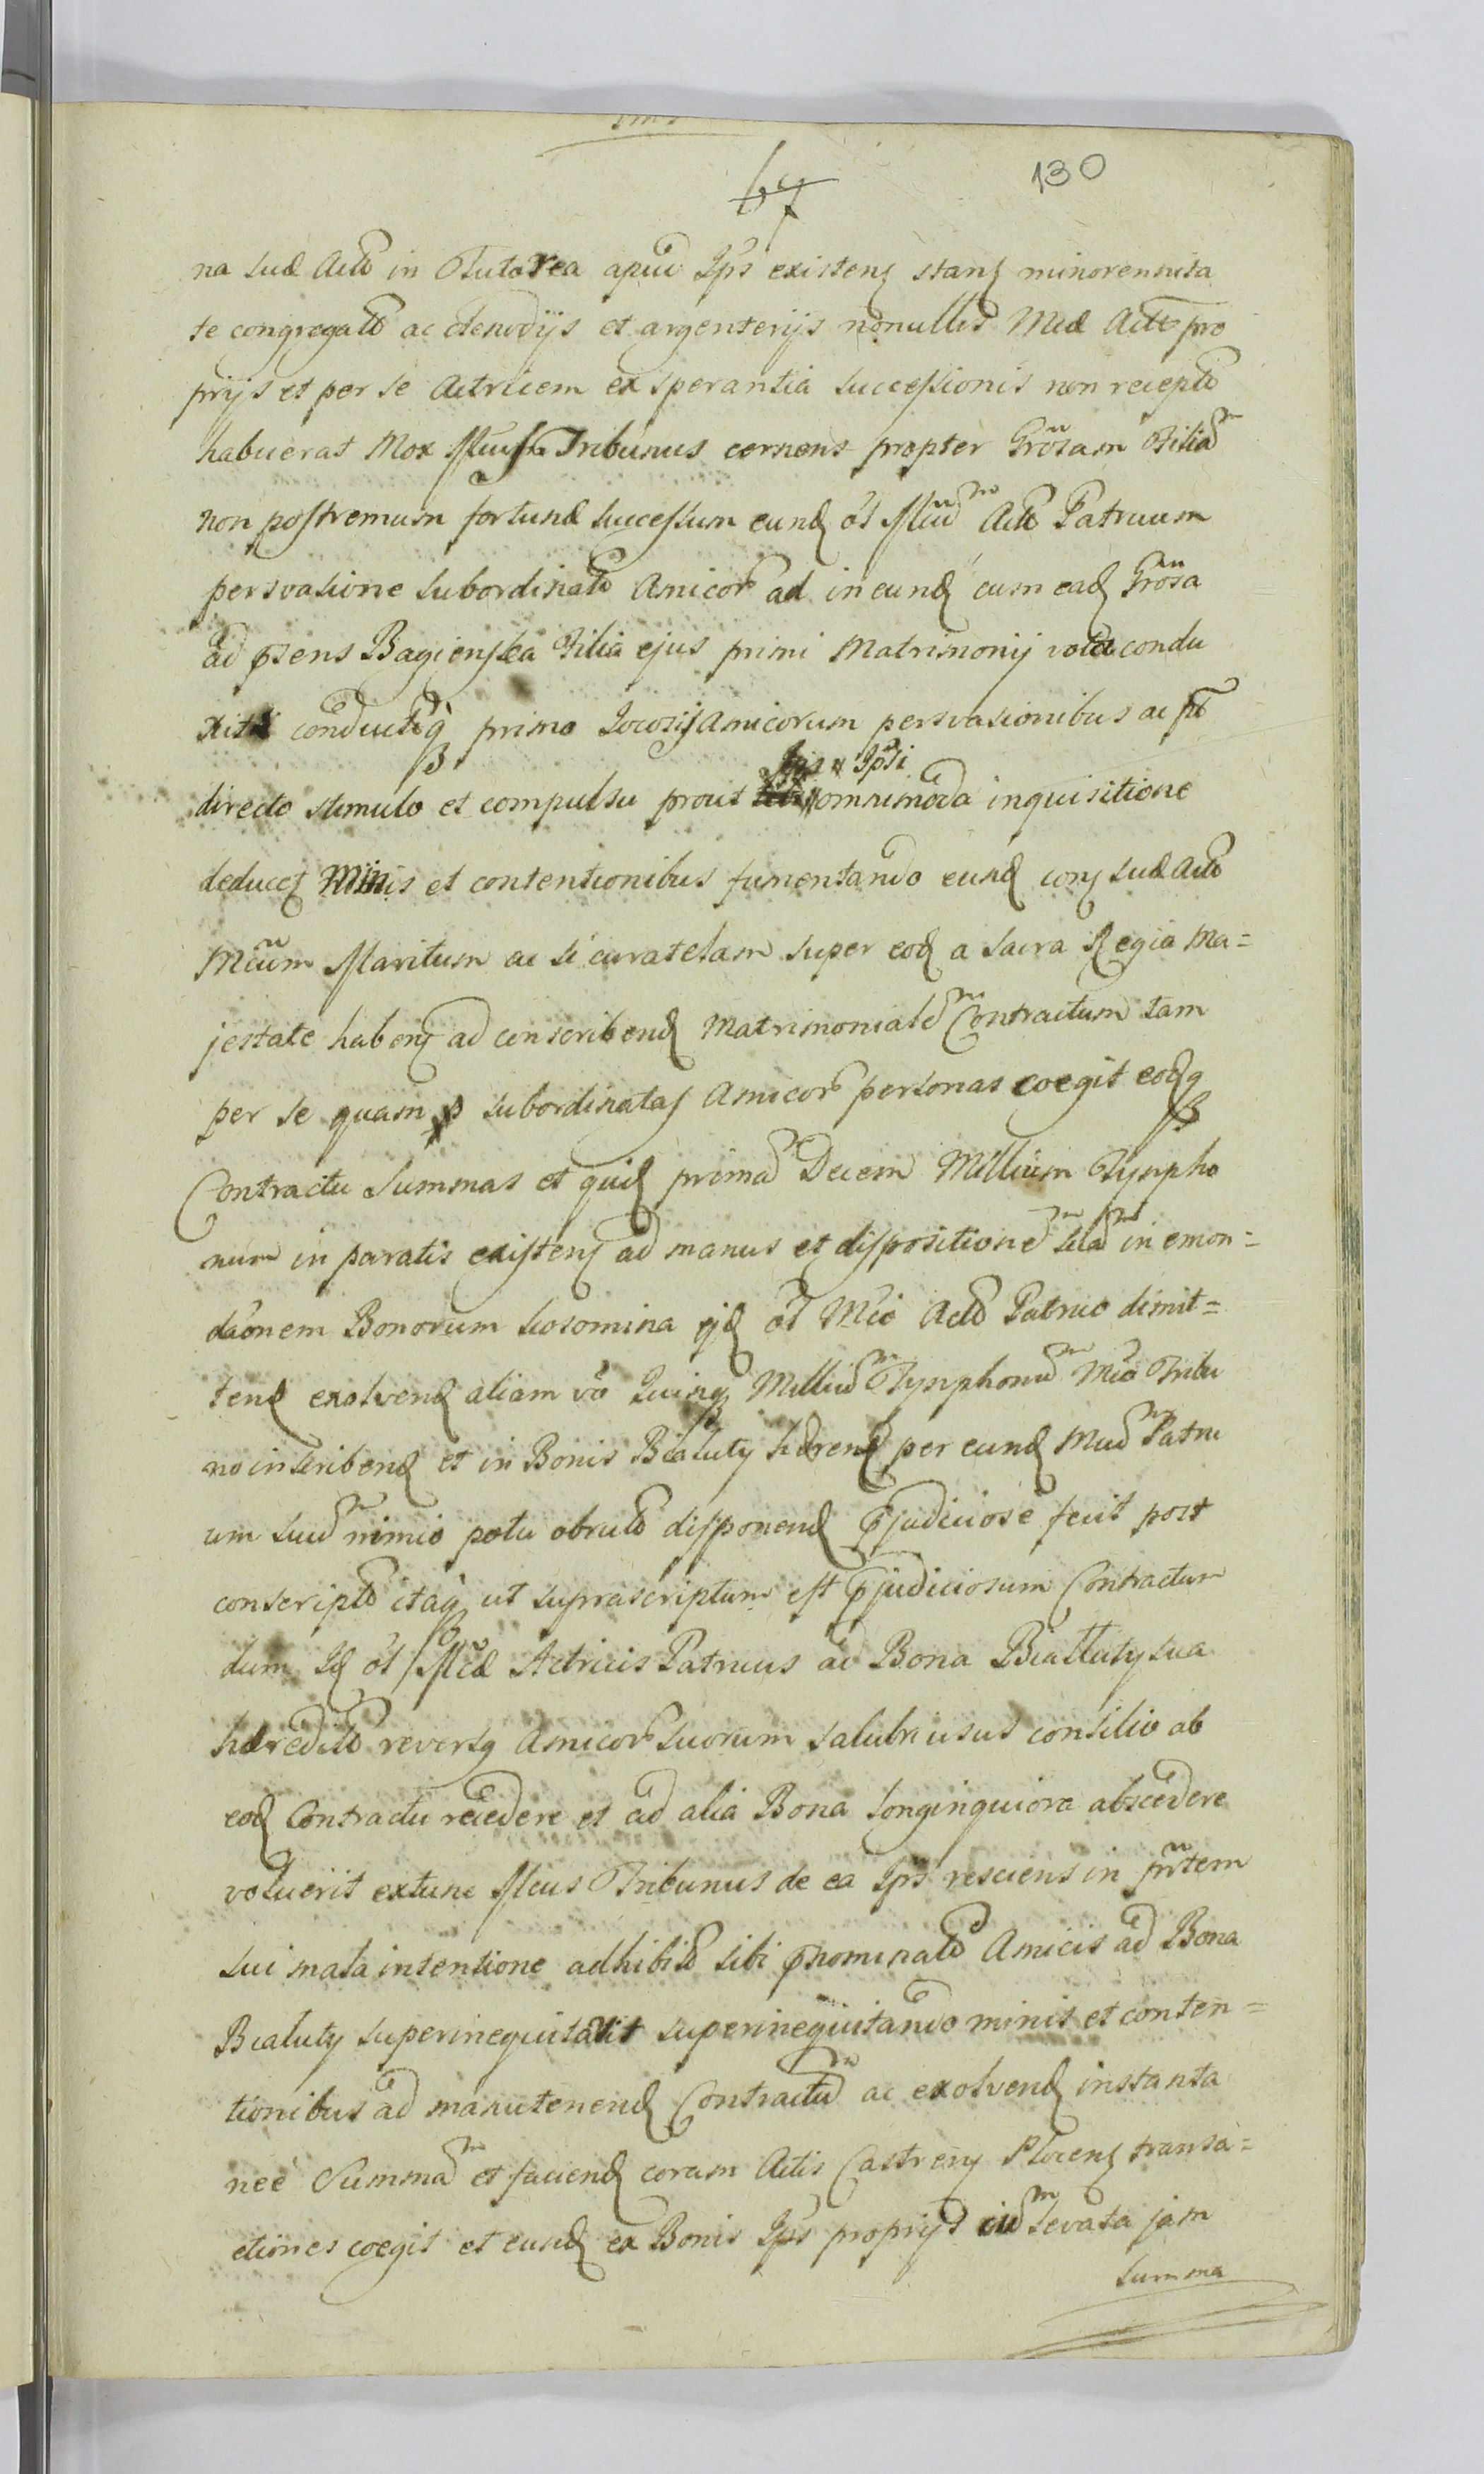 130
67
na suæ Actô in Tutorea apud Ips existenȝ stanȝ minorennita
te congregatô ac clenodijs et argenterijs nonullis Mcæ Actô pro
prijs et per se Actricem ex sperantia successionis non receptô
habuerat Mox Mcus Tribunus cernens propter Grõsam Filiam
non postremum fortunæ successum eundȝ ol Mcum Actô Patruum
persvasione subordinatô Amicor ad ineundȝ cum eadȝ Grõsa
ad psens Bagienska Filia ejus primi Matrimonij vota condu
xit conductiqȝ primo Jocosis Amicorum persvasionibus ac
directo stimulo et compulsu prout Ips Ipsi omnimoda inquisitione
deducet Minis et contentionibus fumentando eundȝ conȝ suæ Actô
Mcum Maritum ac si curatelam super eodȝ a Sacra Regia Ma=
jestate habenȝ ad conscribendȝ Matrimonialem Contractum tam
per se quam p subordinatas Amicor personas coegit eodȝqȝ
Contractu Summas et quidȝ primam Decem Millium Tynpho
num in paratis existenȝ ad manus et dispositionem suam in emon=
daonem Bonorum Sosomina ejdȝ ol Mco Actô Patruo dimit=
tendȝ exolvendȝ aliam vo Quinqȝ Millium Tynphonum Mco Tribu
no inscribendȝ et in Bonis Bialuty hærendȝ per eundȝ Mcum Patru
um suum nimio potu obrutô disponendȝ pjudiciose fecit post
conscriptô itaqȝ ut suprascriptum est pjudiciosum Contractum
dum Idȝ ol Mcæ Actricis Patruus ad Bona Biattuty sua
hæreditô reversȝ Amicor Suorum salubri usus consilio ab
eodȝ Contractu recedere et ad alia Bona longinquiora abscedere
voluerit extunc Mcus Tribunus de ea Ips resciens in prñtem
sui mala intentione adhibitô sibi pnominatô Amicis ad Bona
Bialuty superinequitavit superinequitando minis et conten=
tionibus ad manutenendȝ Contractum ac exolvendȝ instanta
nee Summam et faciendȝ coram Actis Castrenȝ Plocenȝ transa=
ctiones coegit et eundȝ ex Bonis Ips proprijs cum levata jam
summa